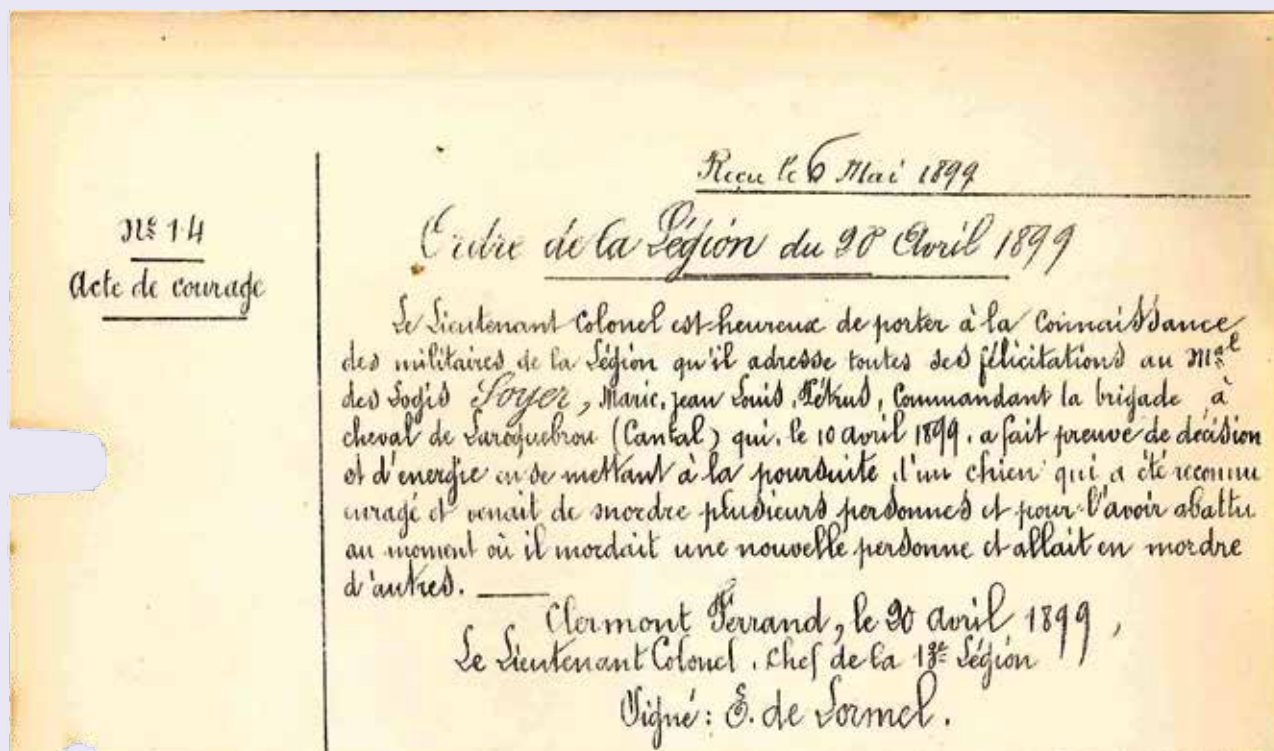 Reçu le 6 Mai 1899
Nº 14
Acte de courage
Ordre de la Légion du 20 Avril 1899
Le Lieutenant Colonel est heureux de porter à la connaissance
des militaires de la Légion qu'il adresse toutes ses félicitations au Mal
des Logis Soyer, Marie, Jean Louis, Commandant la brigade à
cheval de Laroquebrou (Cantal) qui, le 10 avril 1899, a fait preuve de décision
et d'énergie en se mettant à la poursuite d'un chien qui a été reconnu
enragé et venait de mordre plusieurs personnes et pour l'avoir abattu
au moment où il mordait une nouvelle personne et allait en mordre
d'autres. ——
Clermont Ferrand, le 20 avril 1899,
Le Lieutenant Colonel, Chef de la 13e Légion
Signé: E. de Lormel.